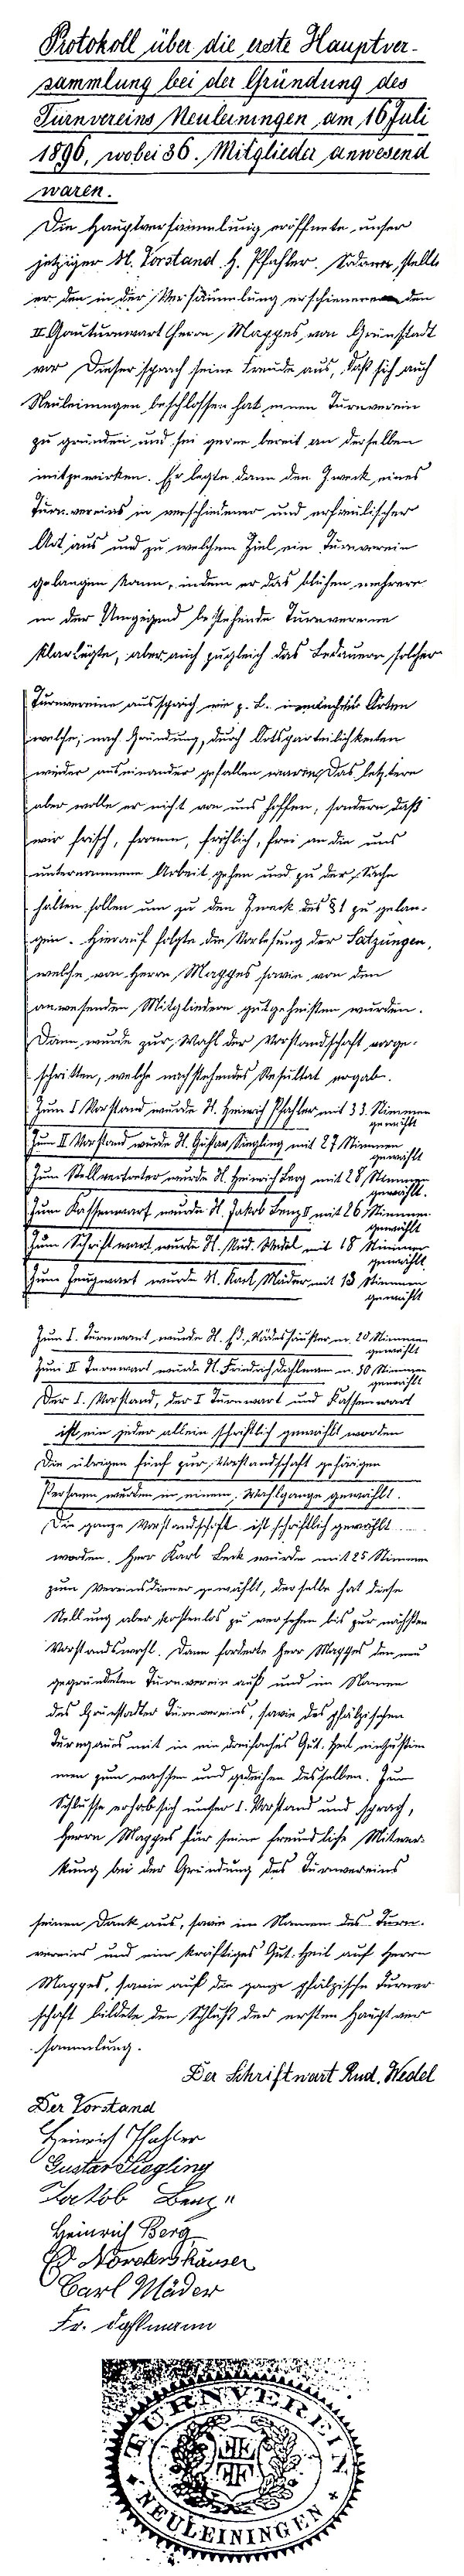 Protokoll über die erste Hauptver-
sammlung bei der Gründung des
Turnvereins Neuleiningen am 16 Juli
1896, wobei 36. Mitglieder anwesend
waren.
Die Hauptversammlung eröffnete unser
jetziger H. Vorstand H. Pfahler. Sodann stellte
er den in der Versammlung erschienenen den
II Gauturnwart Herrn Magges von Grünstadt
vor Dieser sprach seine Freude aus, daß sich auch
Neuleiningen beschlossen hat einen Turnverein
zu gründen und sei gerne bereit an derselben
mitzuwirken. Er legte dann den Zweck eines
Turnvereins in verschiedener und
Art aus und zu welchem Ziel ein Turnverein
gelangen kann, indem er das blühen mehrere
in der Umgegend bestehende Turnvereine
klarlegte, aber auch zugleich das Bedauern solcher
Turnvereine aussprach wie z. B. Orten
welche, nach Gründung, durch Ortsparteilichkeiten
wieder auseinander gefallen waren, Das letztere
aber wolle er nicht von uns hoffen, sondern daß
wir frisch, fromm, fröhlich, frei an die uns
unternommene Arbeit gehen und zu der Sache
halten sollen um zu den Zweck des §1 zu gelan-
gen. Hierauf folgte die Vorlesung der Satzungen,
welche von Herrn Magges sowie von den
anwesenden Mitgliedern gutgeheißen wurden.
Dann wurde zur Wahl der Vorstandschaft vorge-
schritten, welche nachstehendes Resultat ergab.
Zum I Vorstand wurde H. Heinrich Pfahler mit 33 Stimmen
gewählt
Zum II Vorstand wurde H. Gustav Siegling mit 27 Stimmen
gewählt
Zum Stellvertreter wurde H. Heinrich Berg mit 28 Stimmen
gewählt.
Zum Kassenwart wurde H. Jakob Benz II mit 26 Stimmen
gewählt
Zum Schriftwart wurde H. Rud. Wedel mit 18 Stimmen
gewählt.
Zum Zeugwart wurde H. Karl Mäder mit 13 Stimmen
gewählt
Zum I. Turnwart wurde H. Ed. m. 20 Stimmen
gewählt
Zum II Turnwart wurde H. Friedrich Dahlmann m. 30 Stimmen
gewählt
Der I. Vorstand, der I Turnwart und Kassenwart
ist ein jeder allein schriftlich gewählt worden
Die übrigen fünf zur Vorstandschaft gehörigen
Personen wurden in einem Wahlgange gewählt.
Die ganze Vorstandschaft ist schriftlich gewählt
worden. Herr Karl Beck wurde mit 25 Stimmen
zum Vereinsdiener gewählt, derselbe hat diese
Stellung aber kostenlos zu versehen bis zur nächsten
Vorstandswahl. Dann forderte Herr Magges den neu
gegründeten Turnverein auf und im Namen
des Grünstadter Turnvereins, sowie des pfälzischen
Turngaues mit in ein dreifaches Gut. Heil einzustim
men zum wachsen und gedeihen desselben. Zum
Schlusse erhob sich unser I. Vorstand und sprach,
Herrn Magges für seine freundliche Mitwir-
kung bei der Gründung des Turnvereins
seinen Dank aus, sowie im Namen des Turn-
vereins und ein kräftiges Gut. Heil auf Herrn
Magges, sowie auf die ganze pfälzische Turner
schaft bildete den Schluß der ersten Hauptver
sammlung.
Der Schriftwart Rud. Wedel
Der Vorstand
Heinrich Pfahler
Gustav Siegling
Jakob Benz II
Heinrich Berg
Ed Nördershäuser
Carl Mäder
Fr. Dahlmann
TURNVEREIN
NEULEININGEN